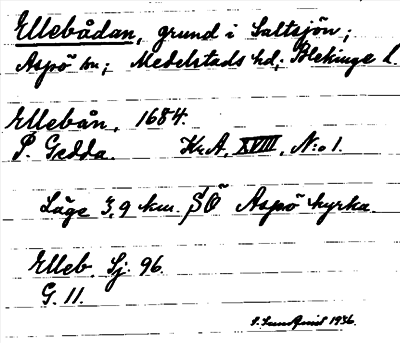 Ellebådan, grund i Saltsjön;
Aspö sn; Medelstads hd; Blekinge l.
Ellebån, 1684.
P. Gedda. Kr.A, XVIII, N:o 1.
Läge 3,9 km. SÖ Aspö kyrka.
Elleb. Sj. 96.
G. 11.
1936.